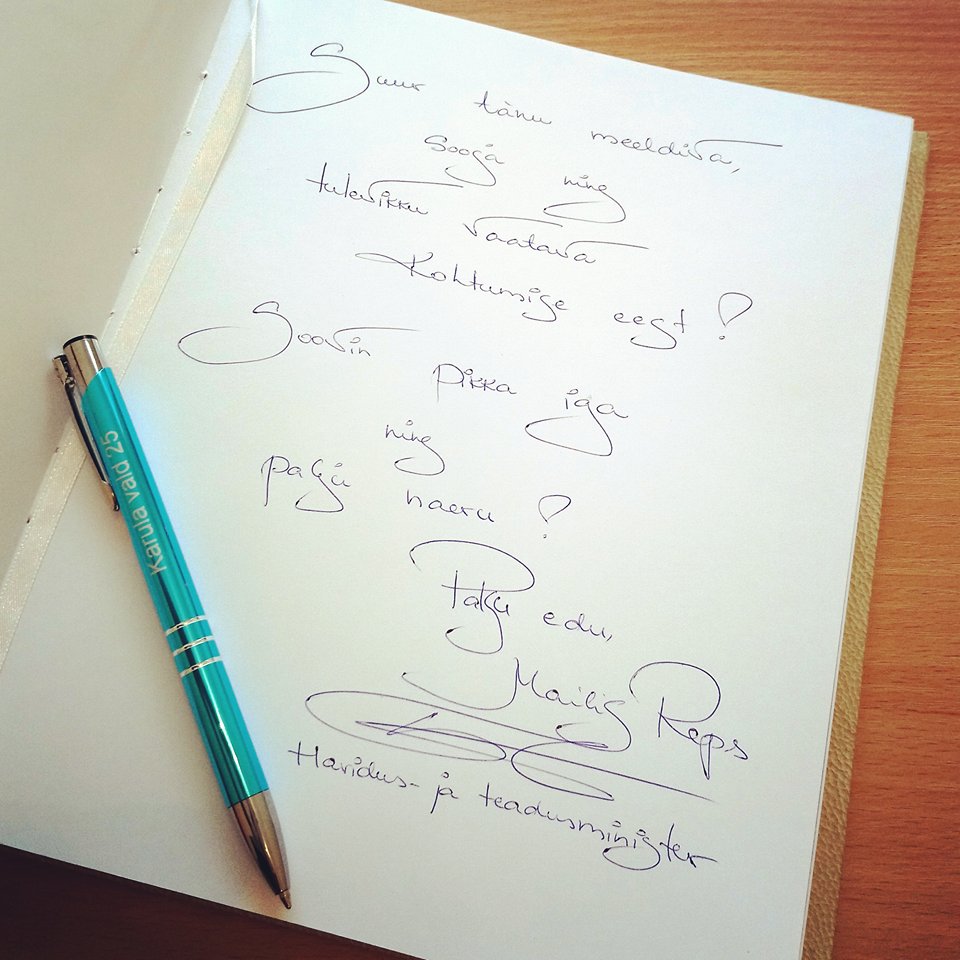 Suur tänu meeldiva,
sooja ning
tuleviku vaatava
Kohtumise eest!
Soovin pikka iga
ning
palju naeru!
Palju edu,
Mailis Reps
Haridus- ja teadusminister
Karula vald 25